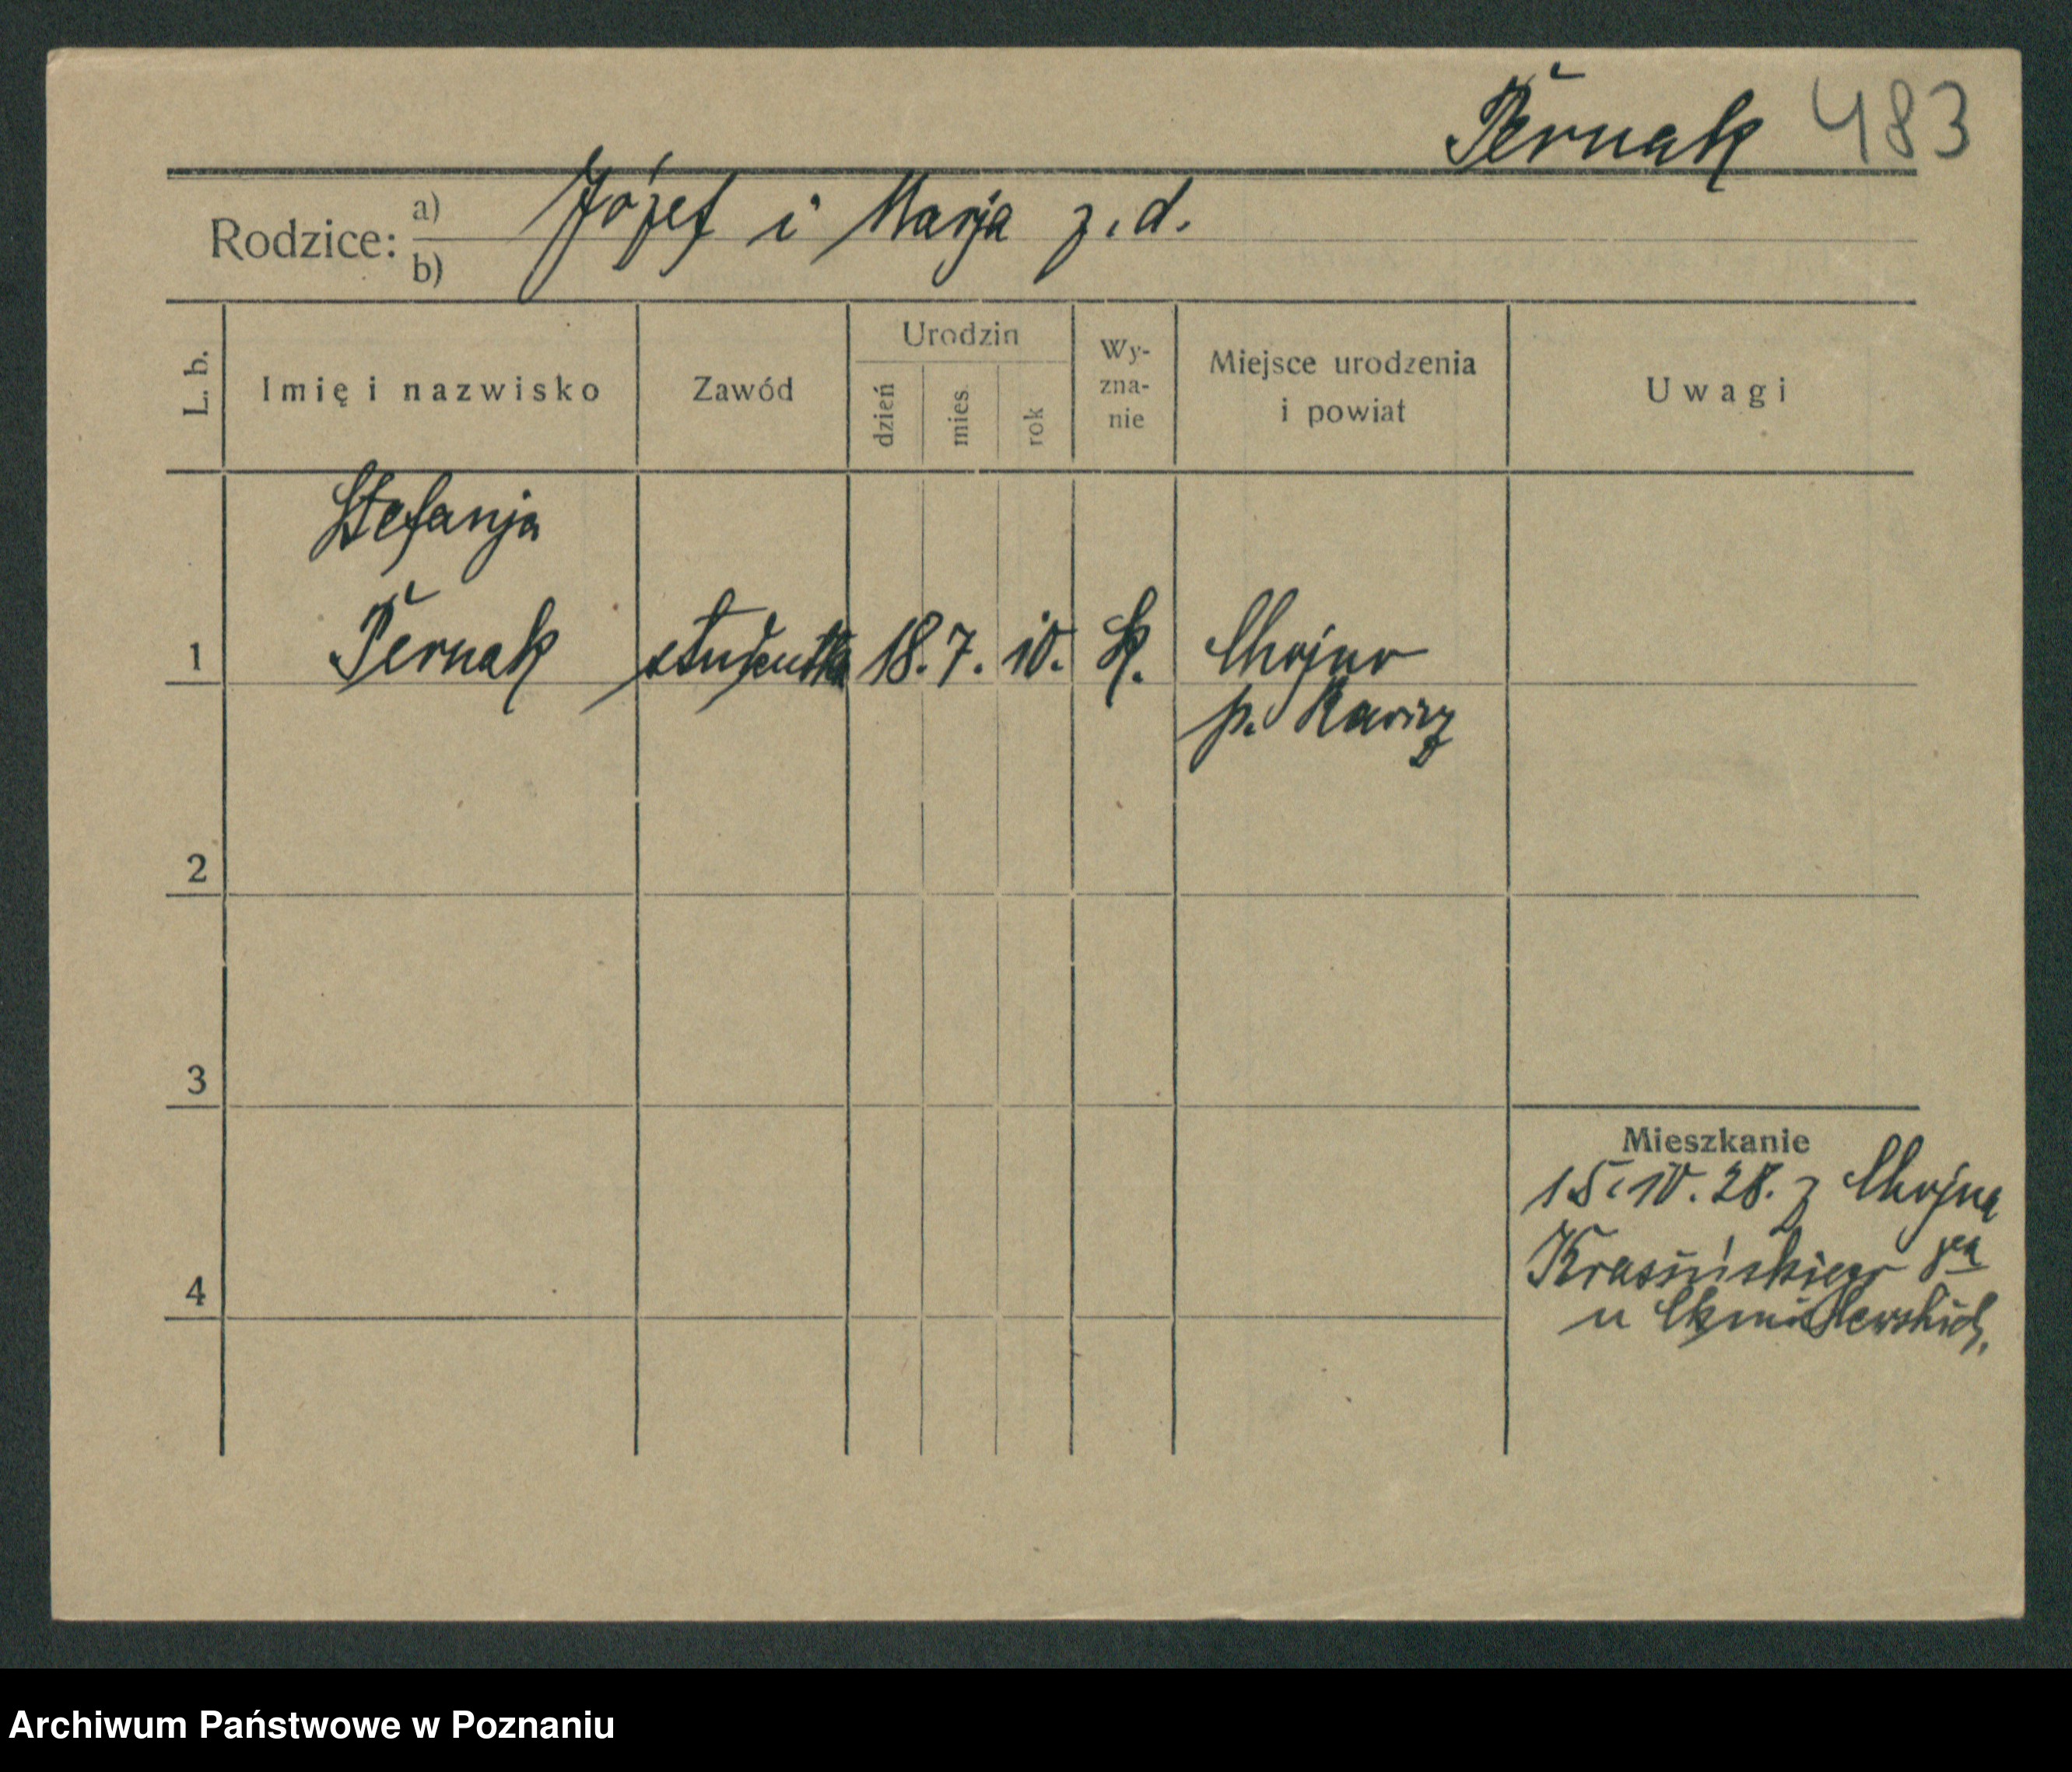 Pernak 483
Rodzice: a) b) Józef i Marja z. d.
L. b. Imię i nazwisko Zawód Urodzin dzień mies. rok Wy-zna-nie Miejsce urodzenia i powiat Uwagi
Stefanja
1 Pernak studentka 18. 7. 10. k. Chojno
p. Rawicz
2
3
Mieszkanie
15.10.28. z Chojna
4 Krasińskiego
u
Archiwum Państwowe w Poznaniu